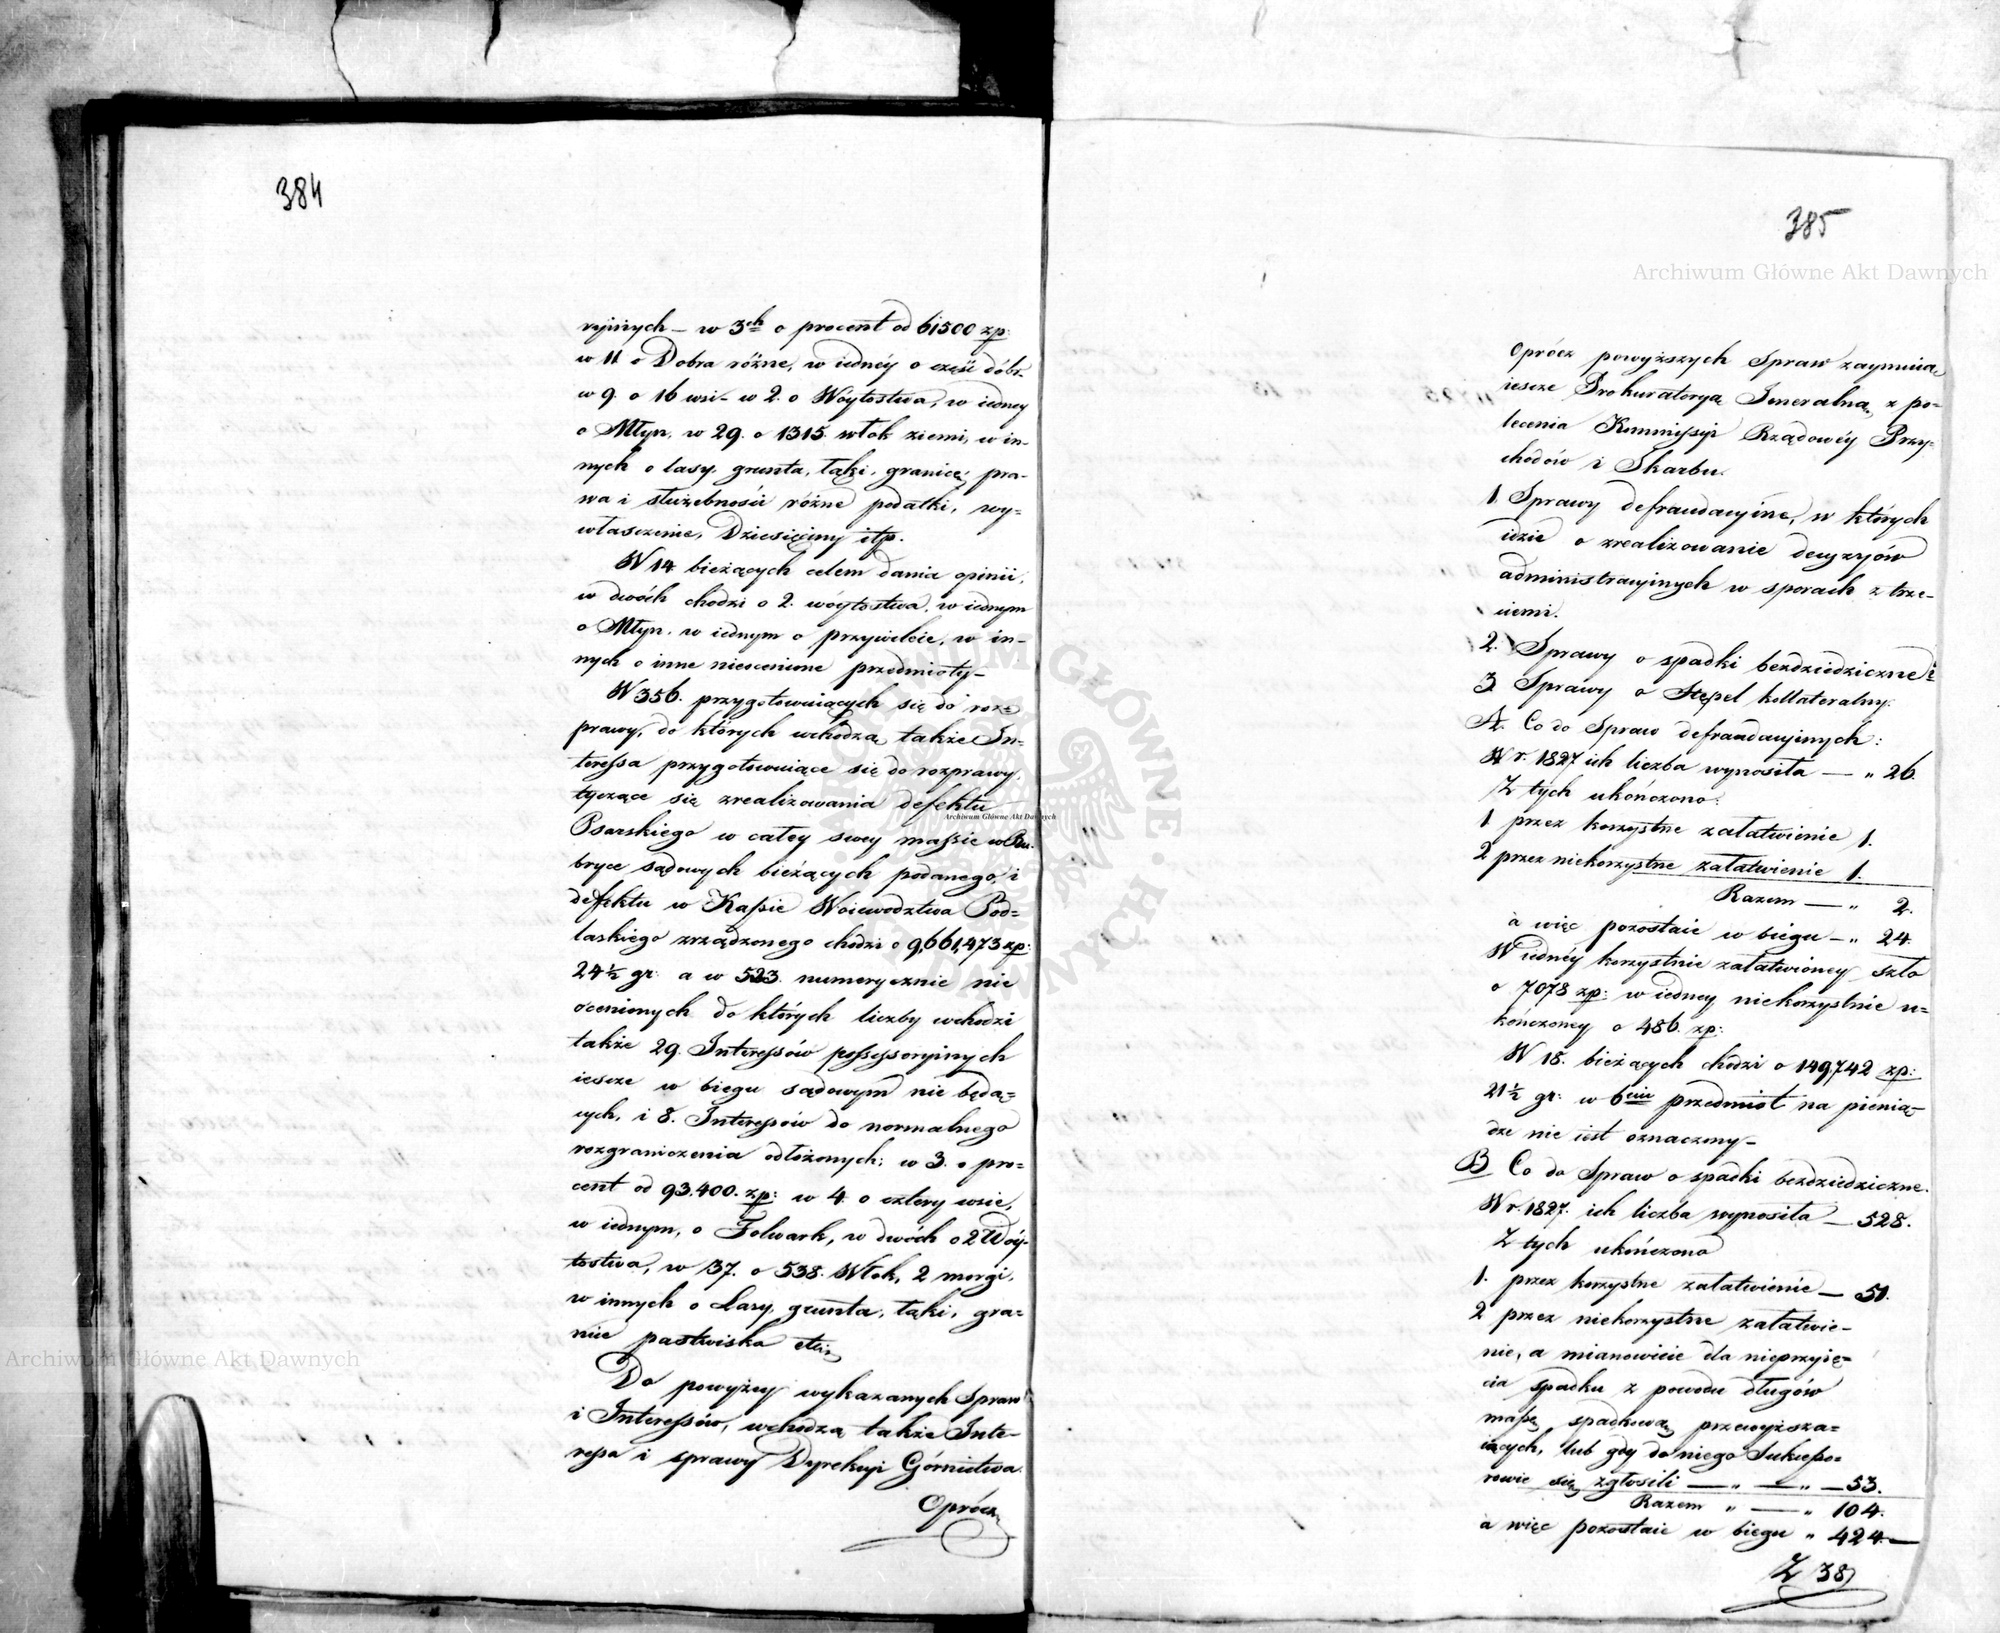 384
ryinych – w 3ch o procent od 61500 zp:
w 11 o Dobra różne, w iednéy o część dóbr
w 9. o 16 wsi – w 2. o Wóytostwa, w iedney
o Młyn, w 29. o 1315. włok ziemi, w in-
nych o lasy, grunta, łąki, granice, pra-
wa i służebności różne podatki, wy-
właszczenie, Dziesięciny itp.
W 14 bieżących celem dania opinii,
w dwóch chodzi o 2. wóytostwa, w iednym
o Młyn, w iednym o przywileie, w in-
nych o inne nieocenione przedmioty –
W 356. przygotowuiących się do roz-
prawy, do których wchodzą także In-
teressa przygotowuiące się do rozprawy,
tyczące się zrealizowania defektu
Psarskiego w całey swey massie w Ru-
bryce sądowych bieżących podanego, i
defektu w Kassie Woiewodztwa Pod-
laskiego zrządzonego chodzi o 9,661,473 zp:
24½ gr: a w 523. numerycznie nie
ocenionych do których liczby wchodzi
także 29. Interessów possessoryinych
ieszcze w biegu sądowym nie będą-
cych, i 8. Interessów do normalnego
rozgraniczenia odłożonych; w 3. o pro-
cent od 93.400. zp: w 4. o cztery wsie,
w iednym, o Folwark, w dwóch o 2 Wóy-
tostwa, w 37. o 538. Włok, 2 morgi,
w innych o Lasy, grunta, łąki, gra-
nice pastwiska etc;
Do powyżey wykazanych Spraw
i Interessów, wchodzą także Inte-
ressa i sprawy Dyrekcyi Górnictwa.
Oprócz
385
Oprócz powyższych Spraw zaymuią
ieszcze Prokuratoryą Jeneralną z po-
lecenia Kommissyi Rządowéy Przy-
chodów i Skarbu.
1. Sprawy defraudacyine, w których
idzie o zrealizowanie decyzyów
administracyinych w sporach z trze-
ciemi.
2. Sprawy o spadki bezdziedziczne i
3 Sprawy o Stępel kollateralny.
A. Co do Spraw defraudacyinych:
W r. 1827 ich liczba wynosiła — „ 26.
Z tych ukończono:
1 przez korzystne załatwienie 1.
2 przez niekorzystne załatwienie 1.
Razem — „ 2.
a więc pozostaie w biegu – „ 24.
W iednéy korzystnie załatwioney szło
o 7078 zp: w iedney niekorzystnie u-
kończoney o 486. zp:
W 18. bieżących chodzi o 149,742 zp:
21½ gr: w 6ciu przedmiot na pienią-
dze nie iest oznaczony –
B Co do Spraw o spadki bezdziedziczne.
W r. 1827. ich liczba wynosiła — 528.
Z tych ukończono
1. przez korzystne załatwienie — 51.
2 przez niekorzystne załatwie-
nie, a mianowicie dla nieprzyię-
cia spadku z powodu długów
massę spadkową przewyższa-
iących, lub gdy do niego Sukcesso-
rowie się zgłosili — „ — „ — 53.
Razem „ — „ 104.
a więc pozostaie w biegu „ 424. —
Z 38
Archiwum Główne Akt Dawnych
Archiwum Główne Akt Dawnych
Archiwum Główne Akt Dawnych